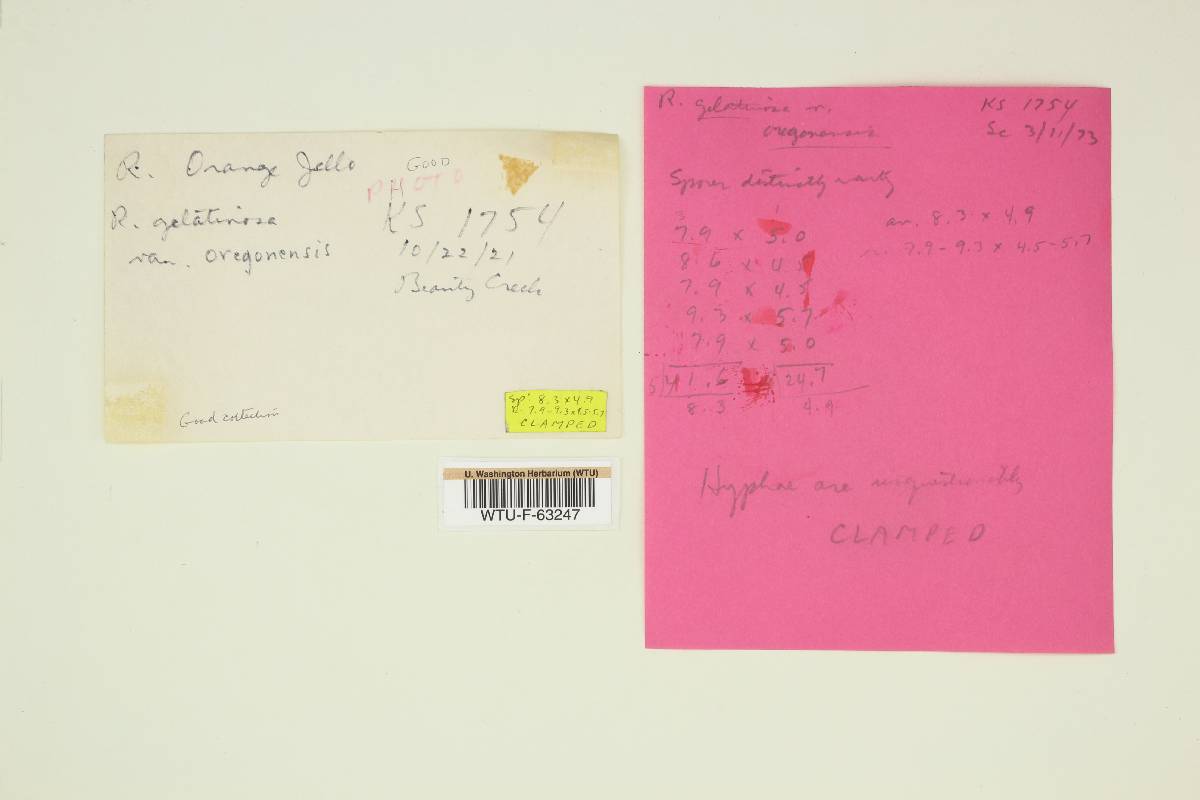 R. Orange Jello
GOOD
PHOTO
R. gelatinosa
var. oregonensis
KS 1754
10/22/21
Beauty Creek
Good collection
Sp: 8.3 x 4.9
r. 7.9-9.3 x 4.5-5.7
CLAMPED
U. Washington Herbarium (WTU)
WTU-F-63247
R. gelatinosa v.
oregonensis
KS 1754
Sc 3/11/73
Spores distinctly warty
7.9 x 5.0
8.6 x 4.5
7.9 x 4.5
9.3 x 5.7
7.9 x 5.0
5 41.6 24.7
8.3 4.9
av. 8.3 x 4.9
r. 7.9-9.3 x 4.5-5.7
Hyphae are unquestionably
CLAMPED